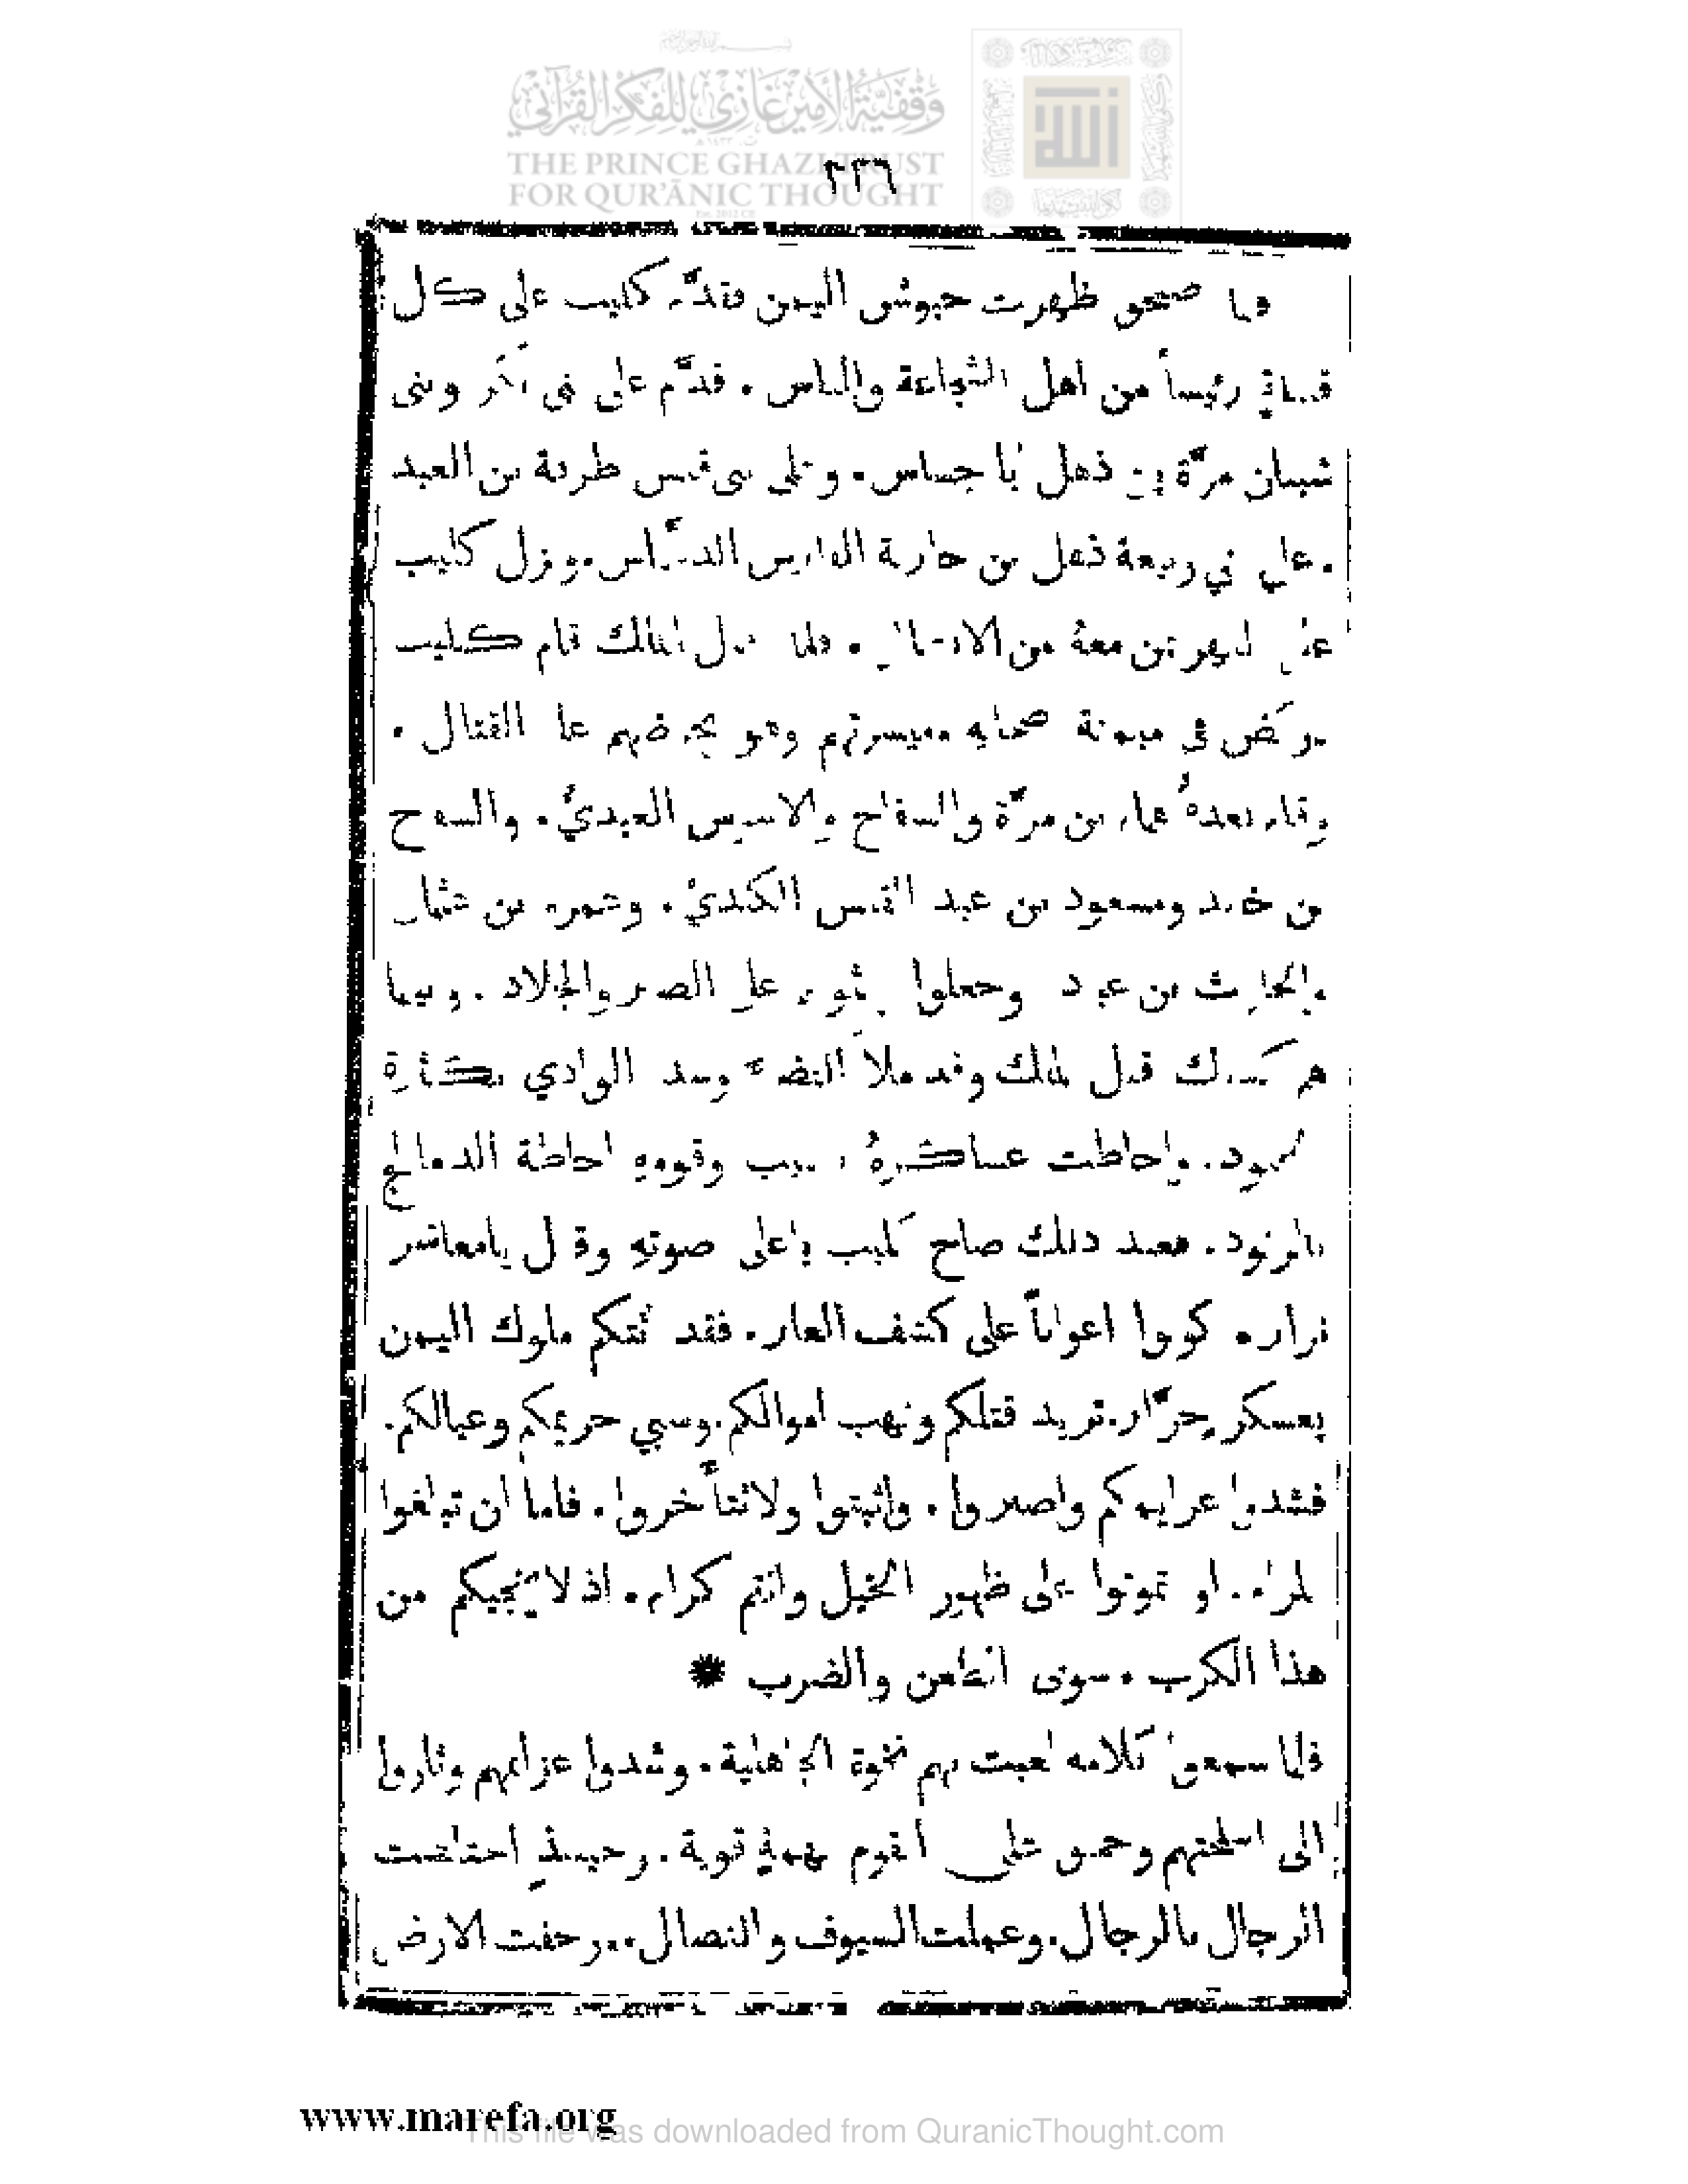 وقفية الأمير غازي للفكر القرآني
THE PRINCE GHAZI TRUST
FOR QUR'ĀNIC THOUGHT
٢٣٦
ظهرت جيوش اليمن فقدَّم كليب على كل
رئيساً من اهل الشجاعة والباس. قدَّم على بني بكر وبني
شيبان مرَّة بن ذهل ابا جساس. وعلى بني قيس طرفة بن العبد
وعلى بني ربيعة ذهل بن حارثة الدرَّاس. ونزل كليب
معهُ من الابطال. فلما المالك قام كليب
يركض في ميمنة وميسرتهم وهو يحرضهم على القتال.
وقام بعدهُ عمام بن مرَّة والسفاح والاسيس العبديُّ. والسفاح
بن خالد ومسعود بن عبد القيس الكنديُّ. وعمرو بن عثمان
والحارث بن عباد وجعلوا على الصبر والجلاد. وبينما
هم كذلك قبل المالك وقد ملأ الفضاء وسد الوادي بكثرة
الجنود. واحاطت عساكرهُ بكليب وقومهِ احاطة الدمالج
بالزنود. فعند ذلك صاح كليب باعلى صوتهِ وقال يا معاشر
نزار. كونوا اعواناً على كشف العار. فقد اتتكم ملوك اليمن
بعسكرٍ جرَّار. تريد قتلكم ونهب اموالكم. وسبي حريمكم وعيالكم.
فشدوا عزايمكم واصبروا. واثبتوا ولا تتأخروا. فاما ان تبلغوا
المرام. او تموتوا على ظهور الخيل وانتم كرام. اذ لا ينجيكم من
هذا الكرب. سوى الطعن والضرب *
فلما سمعوا كلامه لعبت بهم نخوة الجاهلية. وشدوا عزايمهم وثاروا
الى اسلحتهم وحملوا على القوم بهمةٍ قوية. وحينئذٍ اختلطت
الرجال بالرجال. وعملت السيوف والنصال. ورجفت الارض
www.marefa.org
This file was downloaded from QuranicThought.com